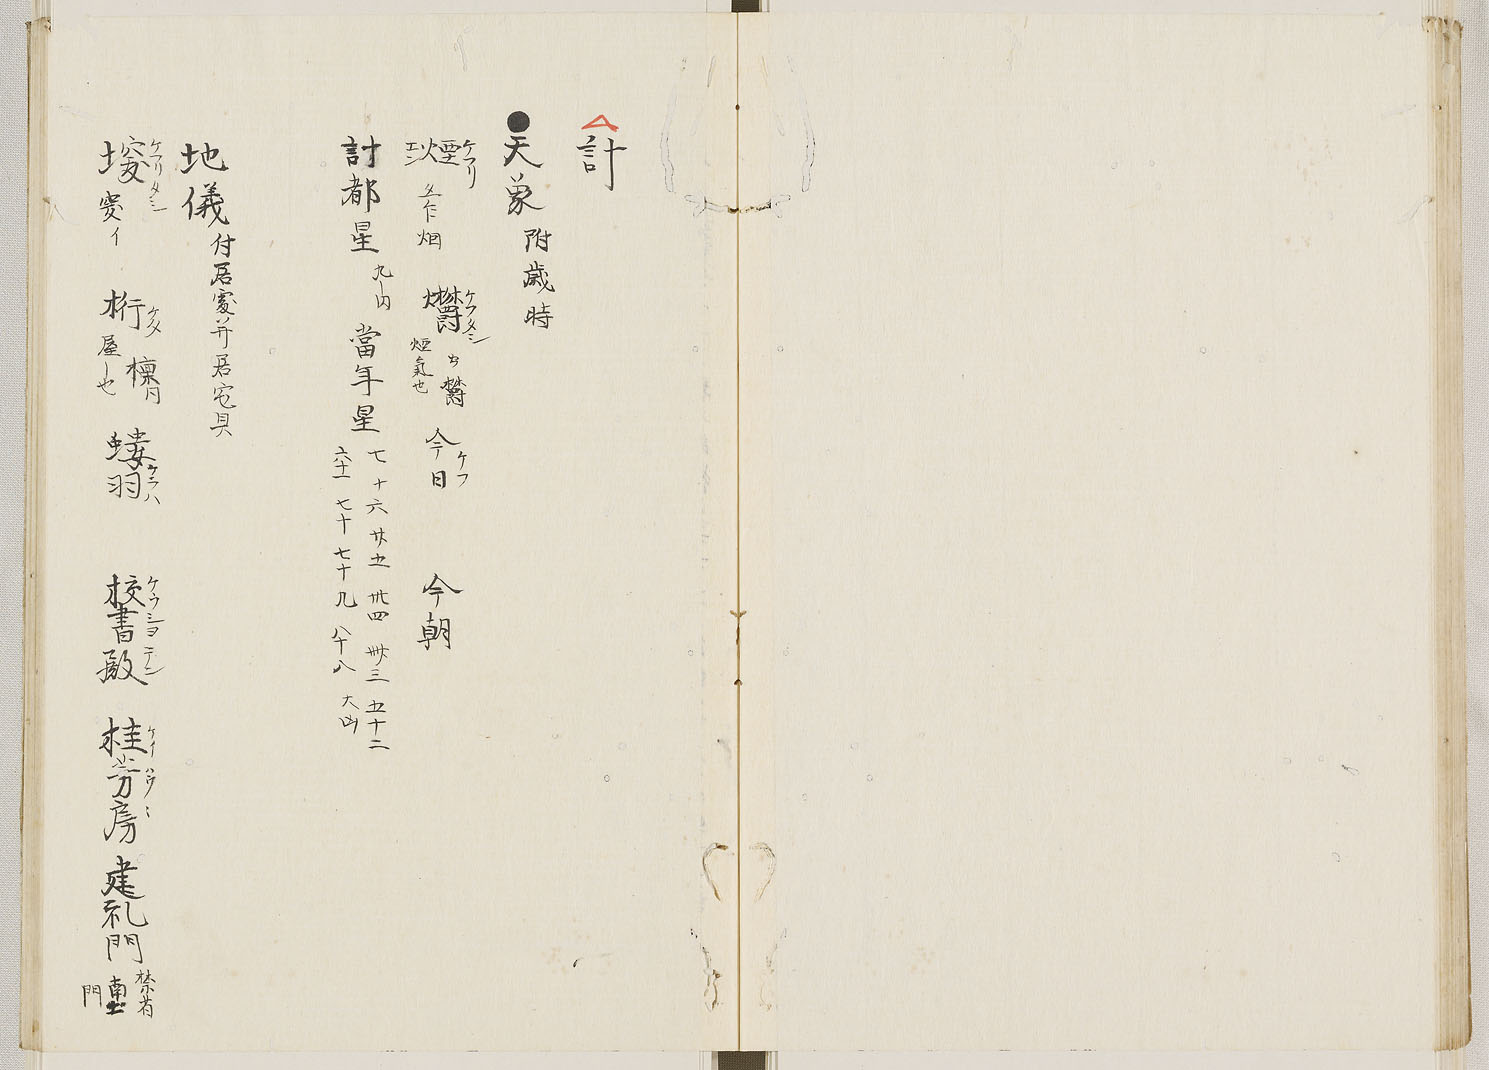 計
天象 附歳時
煙 ケフリ エン 又乍烟 欝 ケフタシ 煙氣也 今日 ケフ 今朝
計都星 九内 當年星 七 十六 廿五 卅四 卌三 五十二 六十一 七十 七十九 八十八 大凶
地儀 付居處并居宅具
堗 ケフリタシ 突イ 桁 ケタ 屋ー也 檁同 螻羽 ケラハ 校書殿 ケウシヨテン 桂芳房 ケイハウ〻 建礼門 禁省南 門